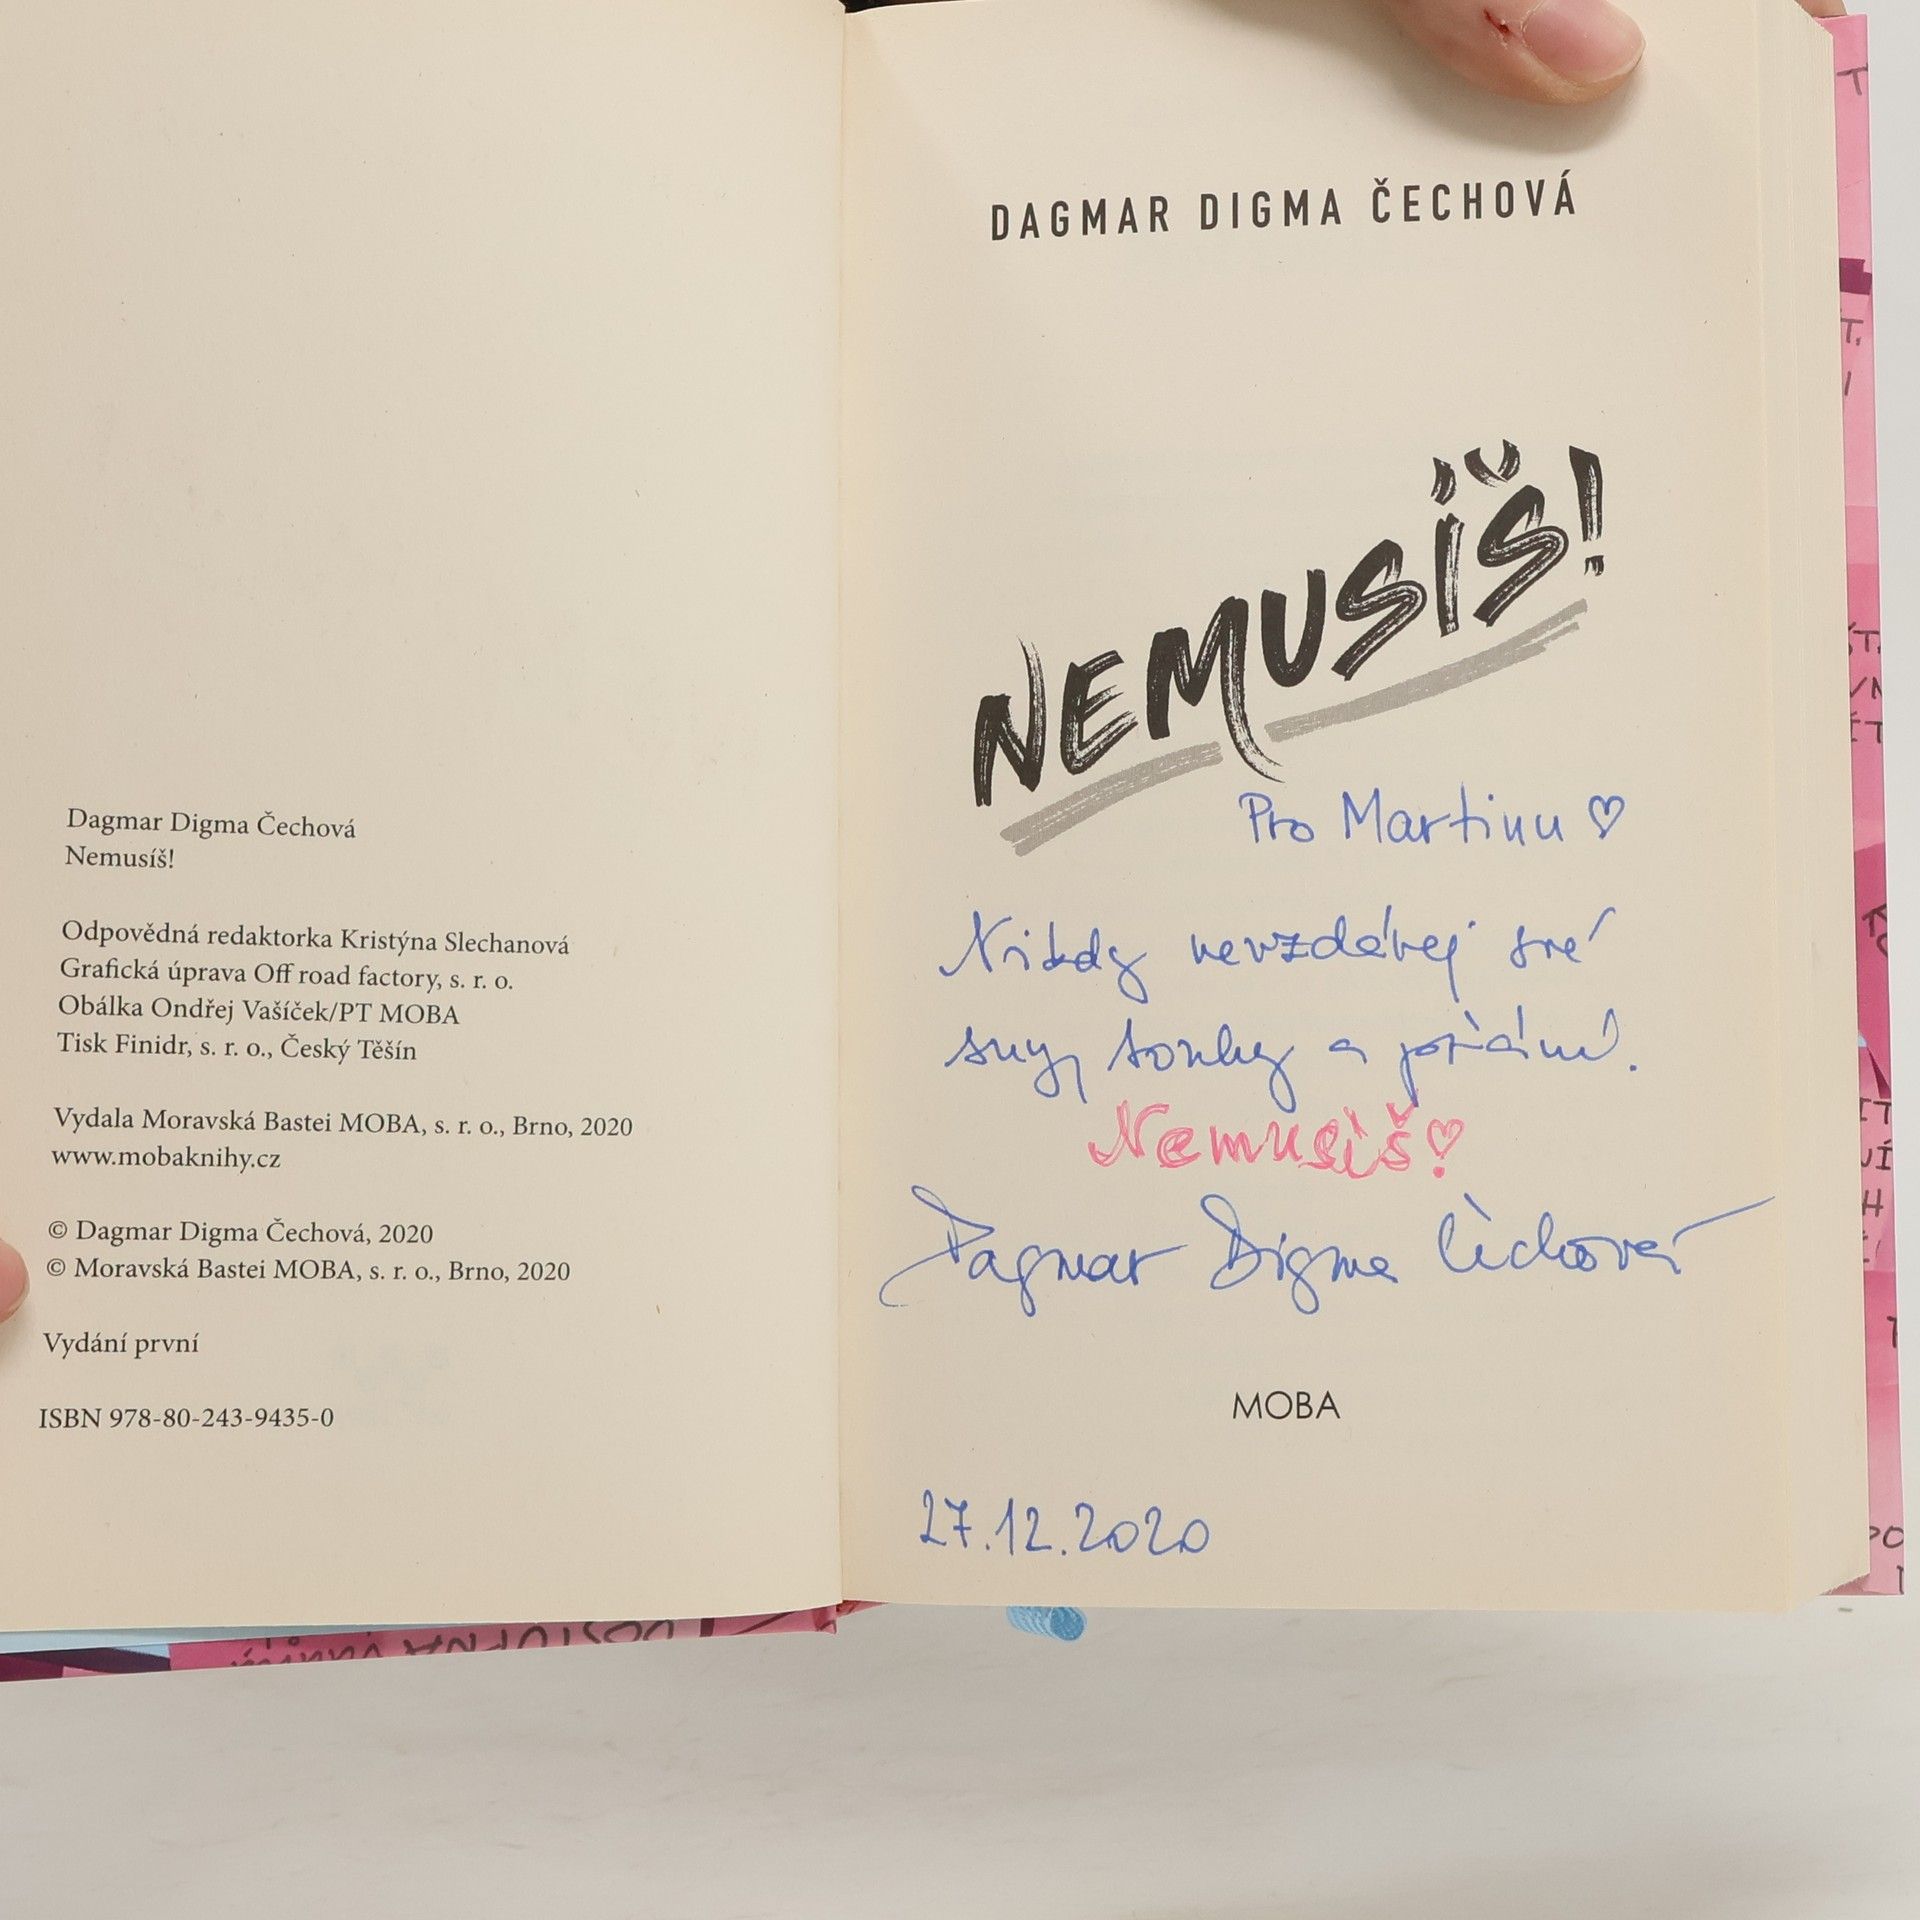 Dagmar Digma Čechová
Nemusíš!
Odpovědná redaktorka Kristýna Slechanová
Grafická úprava Off road factory, s. r. o.
Obálka Ondřej Vašíček/PT MOBA
Tisk Finidr, s. r. o., Český Těšín
Vydala Moravská Bastei MOBA, s. r. o., Brno, 2020
www.mobaknihy.cz
© Dagmar Digma Čechová, 2020
© Moravská Bastei MOBA, s. r. o., Brno, 2020
Vydání první
ISBN 978-80-243-9435-0
DAGMAR DIGMA ČECHOVÁ
NEMUSÍŠ!
Pro Martinu ♡
Nikdy nevzdávej své
sny, touhy a přání.
Nemusíš!
Dagmar Digma Čechová
MOBA
27.12.2020